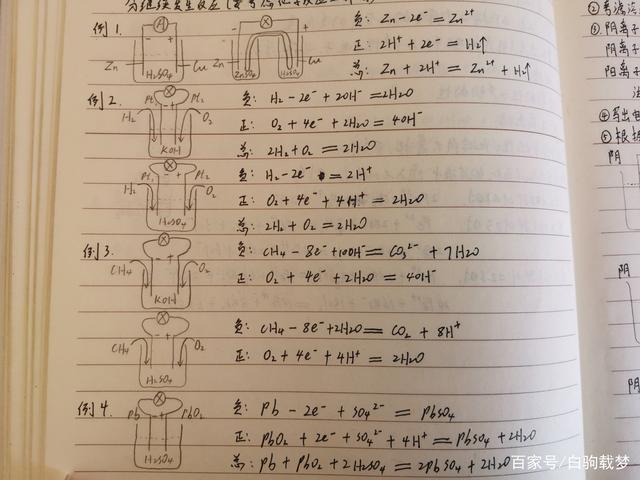 例1.
A
Zn
H2SO4
Cu
Zn
ZnSO4
H2SO4
Cu
负: Zn-2e⁻=Zn²⁺
正: 2H⁺+2e⁻=H2↑
总: Zn+2H⁺=Zn²⁺+H2↑
例2.
Pt1 Pt2
H2 O2
KOH
负: H2-2e⁻+2OH⁻=2H2O
正: O2+4e⁻+2H2O=4OH⁻
总: 2H2+O2=2H2O
Pt1 Pt2
H2 O2
H2SO4
负: H2-2e⁻=2H⁺
正: O2+4e⁻+4H⁺=2H2O
总: 2H2+O2=2H2O
例3.
CH4 O2
KOH
负: CH4-8e⁻+10OH⁻=CO3²⁻+7H2O
正: O2+4e⁻+2H2O=4OH⁻
CH4 O2
H2SO4
负: CH4-8e⁻+2H2O=CO2+8H⁺
正: O2+4e⁻+4H⁺=2H2O
例4.
Pb PbO2
H2SO4
负: Pb-2e⁻+SO4²⁻=PbSO4
正: PbO2+2e⁻+SO4²⁻+4H⁺=PbSO4+2H2O
总: Pb+PbO2+2H2SO4=2PbSO4+2H2O
阴离子
阴离子
阳离子
④写出电
⑤根据
阴
阴
阴
百家号/白驹载梦